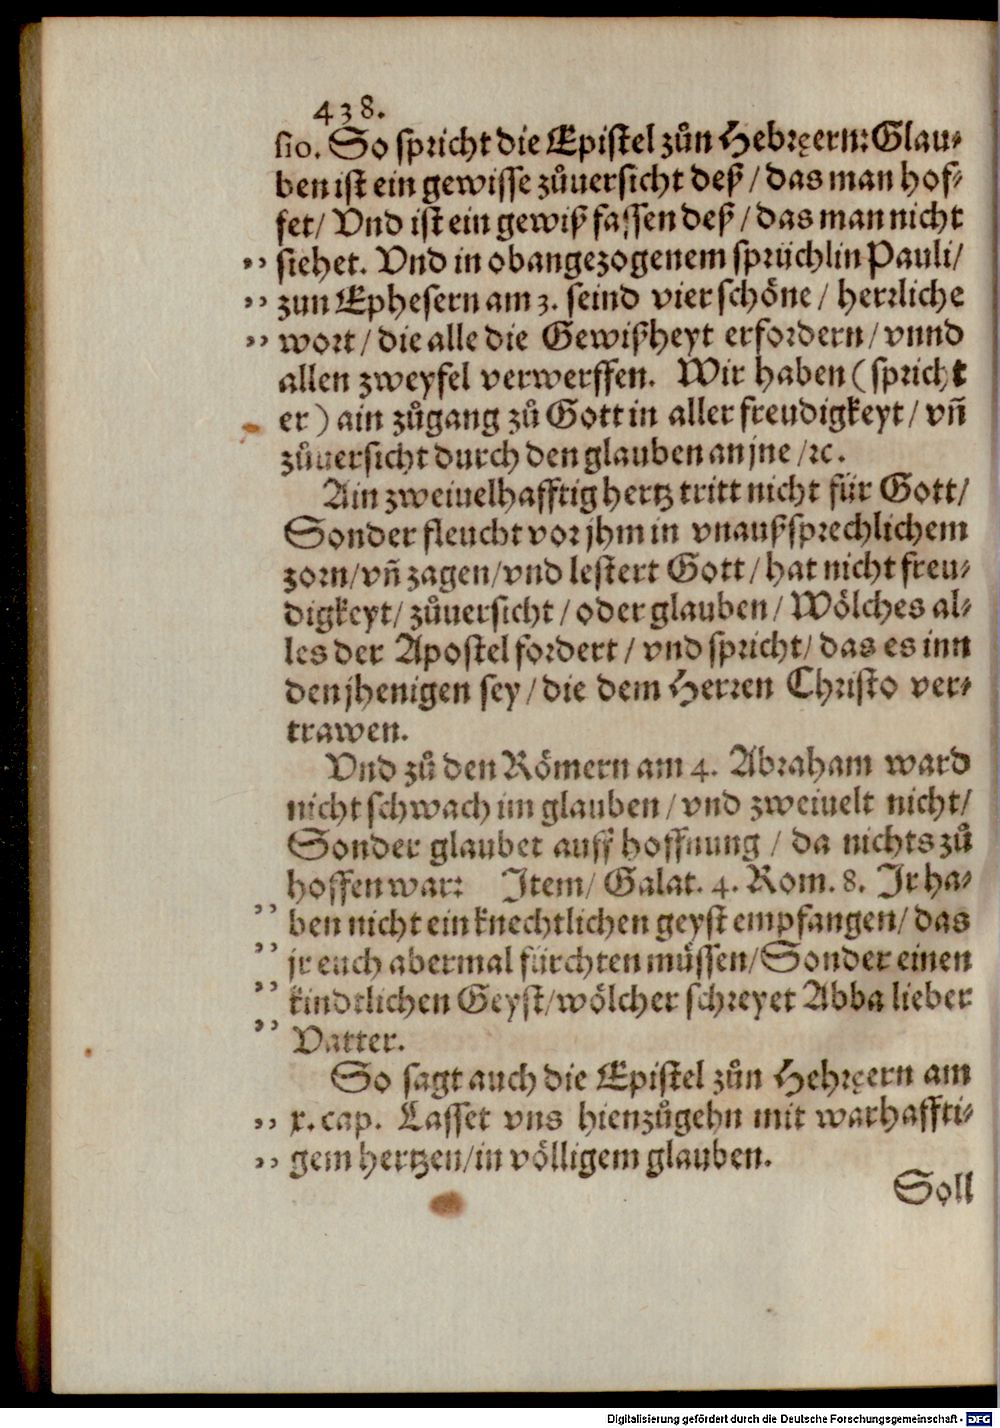 438.
sio. So spricht die Epistel zůn Hebręern: Glau-
ben ist ein gewisse zůuersicht deß / das man hof-
fet / Vnd ist ein gewiß fassen deß / das man nicht
siehet. Vnd in obangezogenem sprüchlin Pauli /
zun Ephesern am 3. seind vier schöne / herrliche
wort / die alle die Gewißheyt erfordern / vnnd
allen zweyfel verwerffen. Wir haben ( spricht
er ) ain zůgang zů Gott in aller freudigkeyt / vn̄
zůuersicht durch den glauben an jne / ꝛc.
Ain zweiuelhafftig hertz tritt nicht für Gott /
Sonder fleucht vor jhm in vnaußsprechlichem
zorn / vn̄ zagen / vnd lestert Gott / hat nicht freu-
digkeyt / zůuersicht / oder glauben / Wölches al-
les der Apostel fordert / vnd spricht / das es inn
den jhenigen sey / die dem Herren Christo ver-
trawen.
Vnd zů den Römern am 4. Abraham ward
nicht schwach im glauben / vnd zweiuelt nicht /
Sonder glaubet auff hoffnung / da nichts zů
hoffen war: Item / Galat. 4. Rom. 8. Ir ha-
ben nicht ein knechtlichen geyst empfangen / das
jr euch abermal fürchten müssen / Sonder einen
kindtlichen Geyst / wölcher schreyet Abba lieber
Vatter.
So sagt auch die Epistel zůn Hehręern am
x. cap. Lasset vns hienzůgehn mit warhaffti-
gem hertzen / in völligem glauben.
Soll
Digitalisierung gefördert durch die Deutsche Forschungsgemeinschaft - DFG